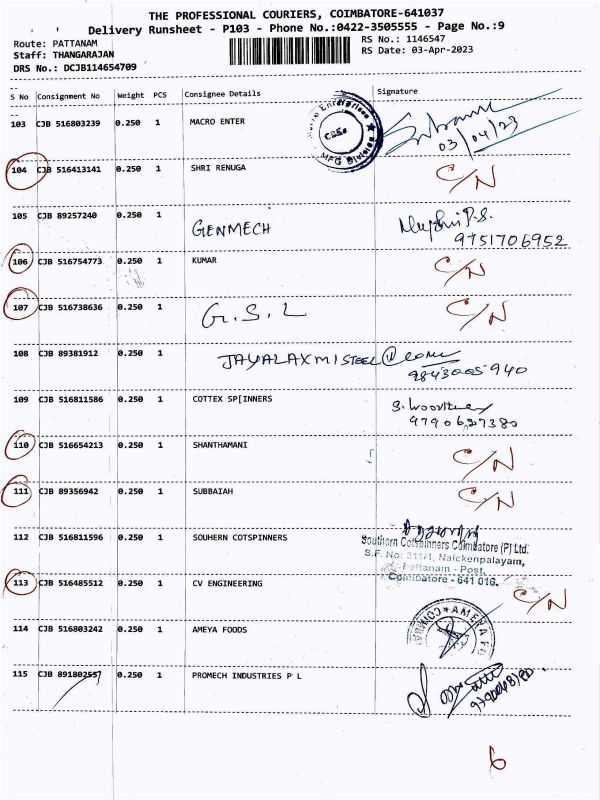 THE PROFESSIONAL COURIERS, COIMBATORE-641037
Delivery Runsheet - P103 - Phone No.:0422-3505555 - Page No.:9
Route: PATTANAM
RS No.: 1146547
Staff: THANGARAJAN
RS Date: 03-Apr-2023
DRS No.: DCJB114654709
S No Consignment No Weight PCS Consignee Details Signature
103 CJB 516803239 0.250 1 MACRO ENTER
03/04/23
104 CJB 516413141 0.250 1 SHRI RENUGA C/N
105 CJB 89257240 0.250 1 GENMECH
9751706952
106 CJB 516754773 0.250 1 KUMAR C/N
107 CJB 516738636 0.250 1 G.S.L C/N
108 CJB 89381912 0.250 1 JAYALAXMI STEEL
9843005940
109 CJB 516811586 0.250 1 COTTEX SP[INNERS
9790627380
110 CJB 516654213 0.250 1 SHANTHAMANI C/N
111 CJB 89356942 0.250 1 SUBBAIAH C/N
112 CJB 516811596 0.250 1 SOUHERN COTSPINNERS
Southern Cotspinners Coimbatore (P) Ltd.
S.F. No: 211/1, Naickenpalayam,
Pattanam - Post,
Coimbatore - 641 016.
113 CJB 516485512 0.250 1 CV ENGINEERING C/N
114 CJB 516803242 0.250 1 AMEYA FOODS
115 CJB 891802557 0.250 1 PROMECH INDUSTRIES P L
6